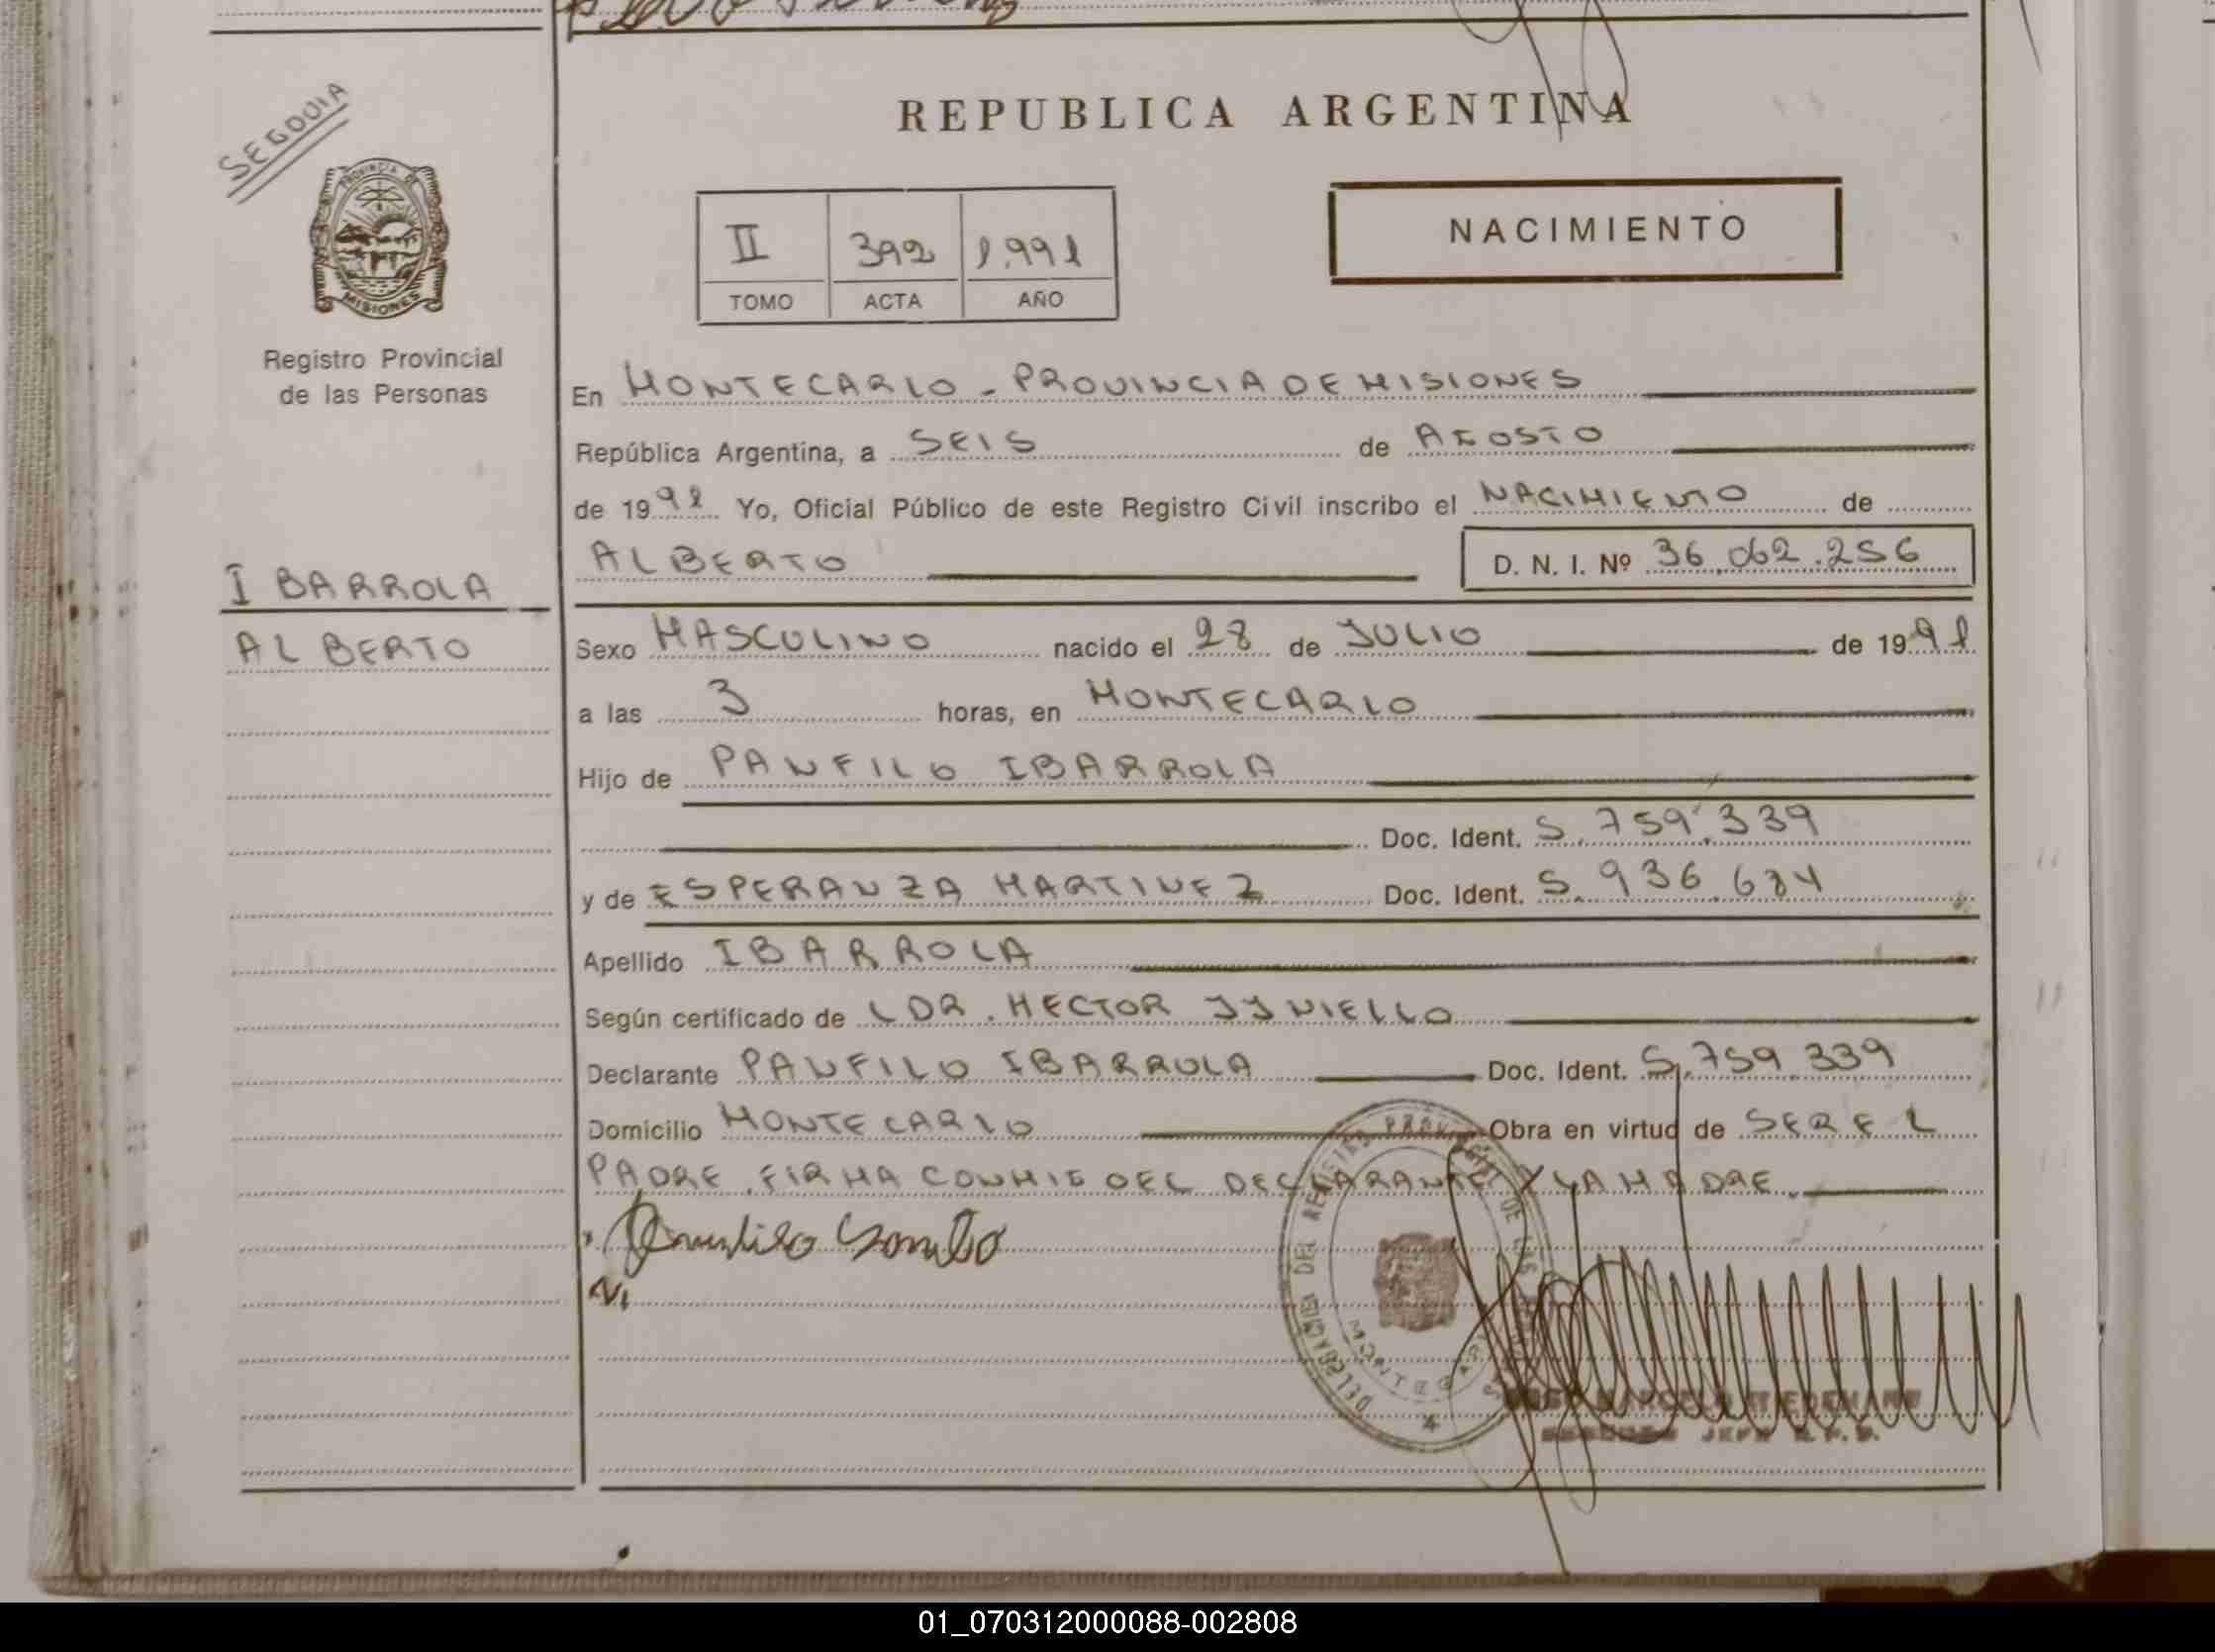 SEGOVIA
PROVINCIA DE
MISIONES
Registro Provincial
de las Personas
IBARROLA
ALBERTO
REPUBLICA ARGENTINA
II 392 1.991
TOMO ACTA AÑO
NACIMIENTO
En MONTECARLO - PROVINCIA DE MISIONES
República Argentina, a SEIS de AGOSTO
de 1991 Yo, Oficial Público de este Registro Civil inscribo el NACIMIENTO de
ALBERTO D. N. I. Nº 36.062.256
Sexo MASCULINO nacido el 28 de JULIO de 1991
a las 3 horas, en MONTECARLO
Hijo de PANFILO IBARROLA
Doc. Ident. 5.759.339
y de ESPERANZA MARTINEZ Doc. Ident. 5.936.684
Apellido IBARROLA
Según certificado de LDR. HECTOR YYNIELLO
Declarante PANFILO IBARROLA Doc. Ident. 5.759.339
Domicilio MONTECARLO Obra en virtud de SER EL
PADRE. FIRMA CONMIG DEL DECLARANTE Y LA MADRE.
DELEGACION DEL REGISTRO PROVINCIAL DE LAS PERSONAS
MONTECARLO
JEFE R. P. P.
01_070312000088-002808